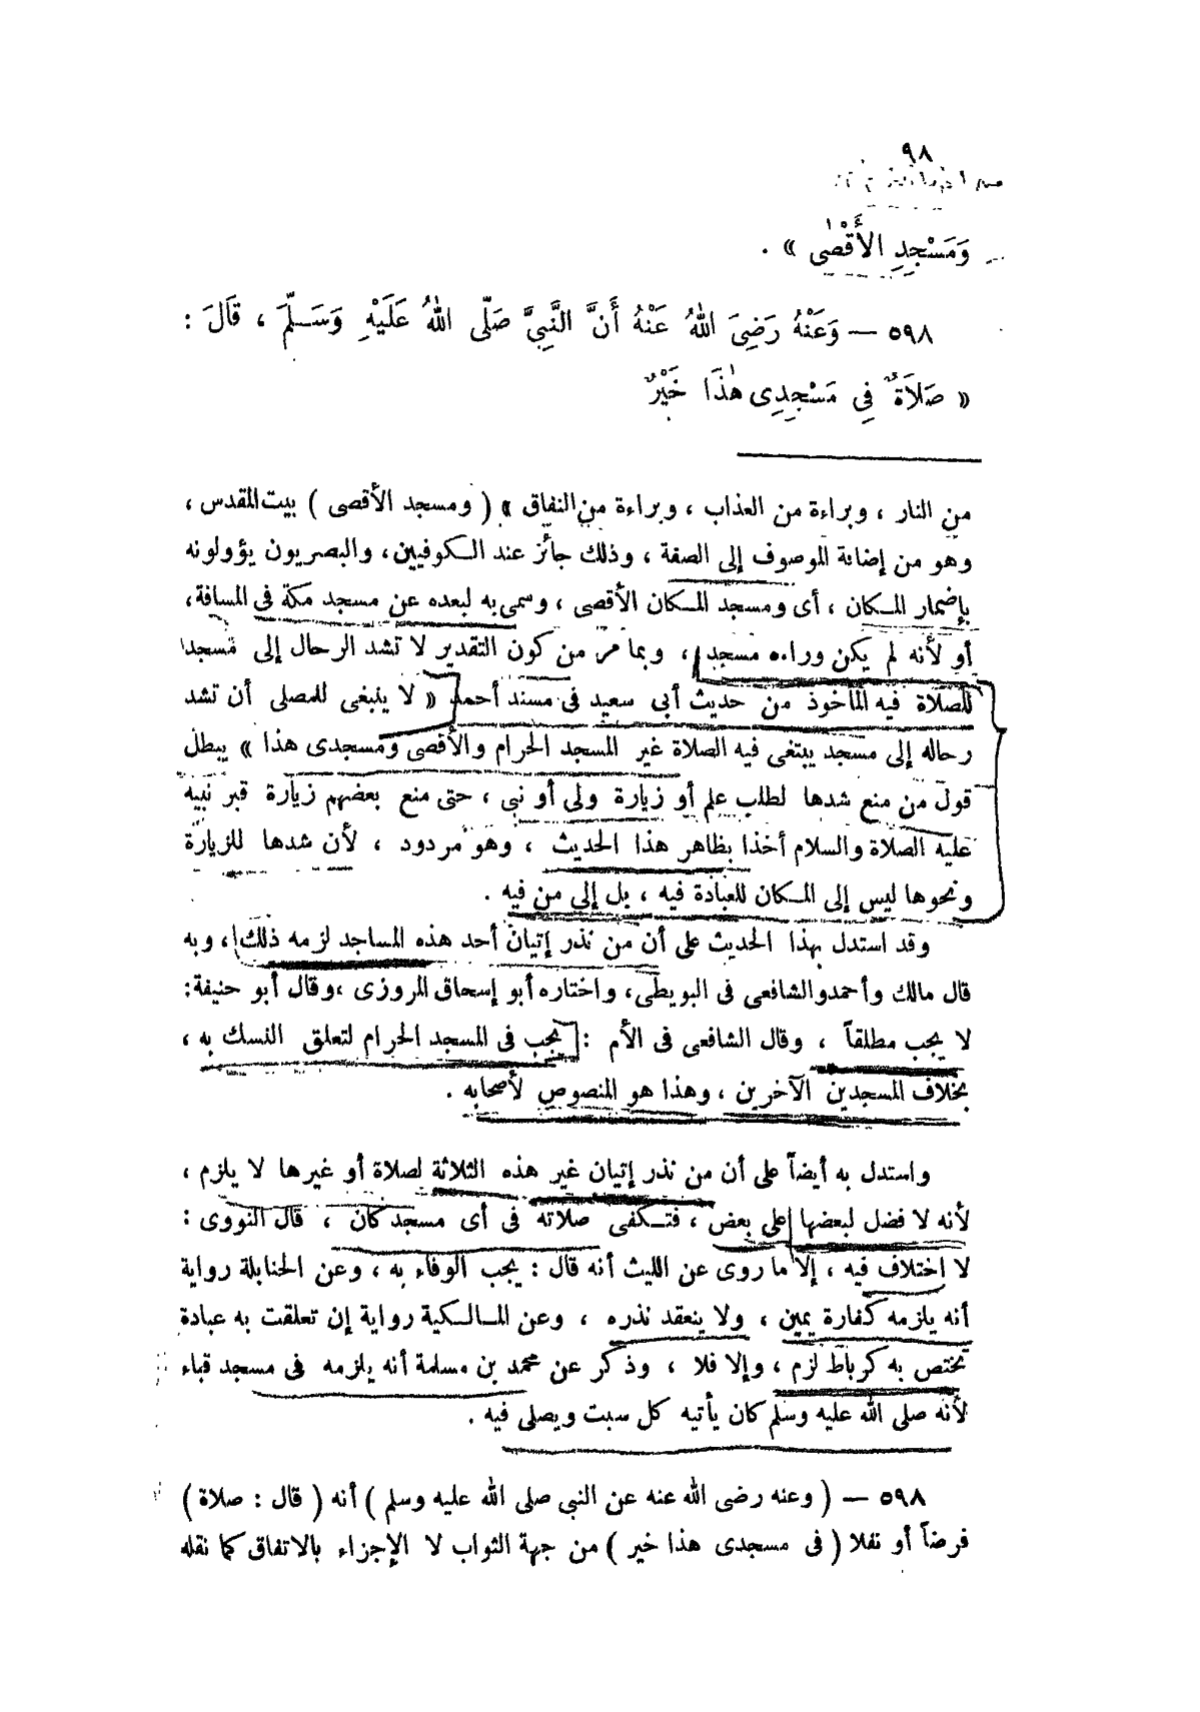 ٩٨
وَمَسْجِدِ الأَقْصٰى » .
٥٩٨ — وَعَنْهُ رَضِىَ اللهُ عَنْهُ أَنَّ النَّبِيَّ صَلّى اللهُ عَلَيْهِ وَسَلَّمَ ، قَالَ :
« صَلَاةٌ فِى مَسْجِدِى هٰذَا خَيْرٌ
من النار ، وبراءة من العذاب ، وبراءة من النفاق » ( ومسجد الأقصى ) بيت المقدس ،
وهو من إضافة الموصوف إلى الصفة ، وذلك جائز عند الكوفيين ، والبصريون يؤولونه
بإضمار المكان ، أى ومسجد المكان الأقصى ، وسمى به لبعده عن مسجد مكة فى المسافة ،
أو لأنه لم يكن وراءه مسجد ، وبما مر من كون التقدير لا تشد الرحال إلى مسجد
للصلاة فيه المأخوذ من حديث أبى سعيد فى مسند أحمد « لا ينبغى للمصلى أن تشد
رحاله إلى مسجد يبتغى فيه الصلاة غير المسجد الحرام والأقصى ومسجدى هذا » يبطل
قول من منع شدها لطلب علم أو زيارة ولى أو نبى ، حتى منع بعضهم زيارة قبر نبيه
عليه الصلاة والسلام أخذا بظاهر هذا الحديث ، وهو مردود ، لأن شدها للزيارة
ونحوها ليس إلى المكان للعبادة فيه ، بل إلى من فيه .
وقد استدل بهذا الحديث على أن من نذر إتيان أحد هذه المساجد لزمه ذلك ، وبه
قال مالك وأحمد والشافعى فى البويطى ، واختاره أبو إسحاق المروزى ، وقال أبو حنيفة :
لا يجب مطلقاً ، وقال الشافعى فى الأم : يجب فى المسجد الحرام لتعلق النسك به ،
بخلاف المسجدين الآخرين ، وهذا هو المنصوص لأصحابه .
واستدل به أيضاً على أن من نذر إتيان غير هذه الثلاثة لصلاة أو غيرها لا يلزم ،
لأنه لا فضل لبعضها على بعض ، فتكفى صلاته فى أى مسجد كان ، قال النووى :
لا اختلاف فيه ، إلا ما روى عن الليث أنه قال : يجب الوفاء به ، وعن الحنابلة رواية
أنه يلزمه كفارة يمين ، ولا ينعقد نذره ، وعن المالكية رواية إن تعلقت به عبادة
تختص به كرباط لزم ، وإلا فلا ، وذكر عن محمد بن مسلمة أنه يلزمه فى مسجد قباء
لأنه صلى الله عليه وسلم كان يأتيه كل سبت ويصلى فيه .
٥٩٨ — ( وعنه رضى الله عنه عن النبى صلى الله عليه وسلم ) أنه ( قال : صلاة )
فرضاً أو نفلا ( فى مسجدى هذا خير ) من جهة الثواب لا الإجزاء بالاتفاق كما نقله